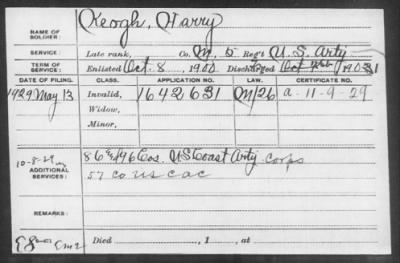 NAME OF SOLDIER: Keogh, Harry
SERVICE: Late rank, Co. M, 5 Reg't U.S. Arty
TERM OF SERVICE: Enlisted Oct. 8, 1900 Discharged Oct 7, 1903
DATE OF FILING. CLASS. APPLICATION NO. LAW. CERTIFICATE NO.
1929 May 13 Invalid, 1642631 M/26 a-11-9-29
Widow,
Minor,
10-8-29 86 & 96 Cos. US Coast Arty Corps
ADDITIONAL SERVICES: 57 Co US CAC
REMARKS:
Died , 1 , at